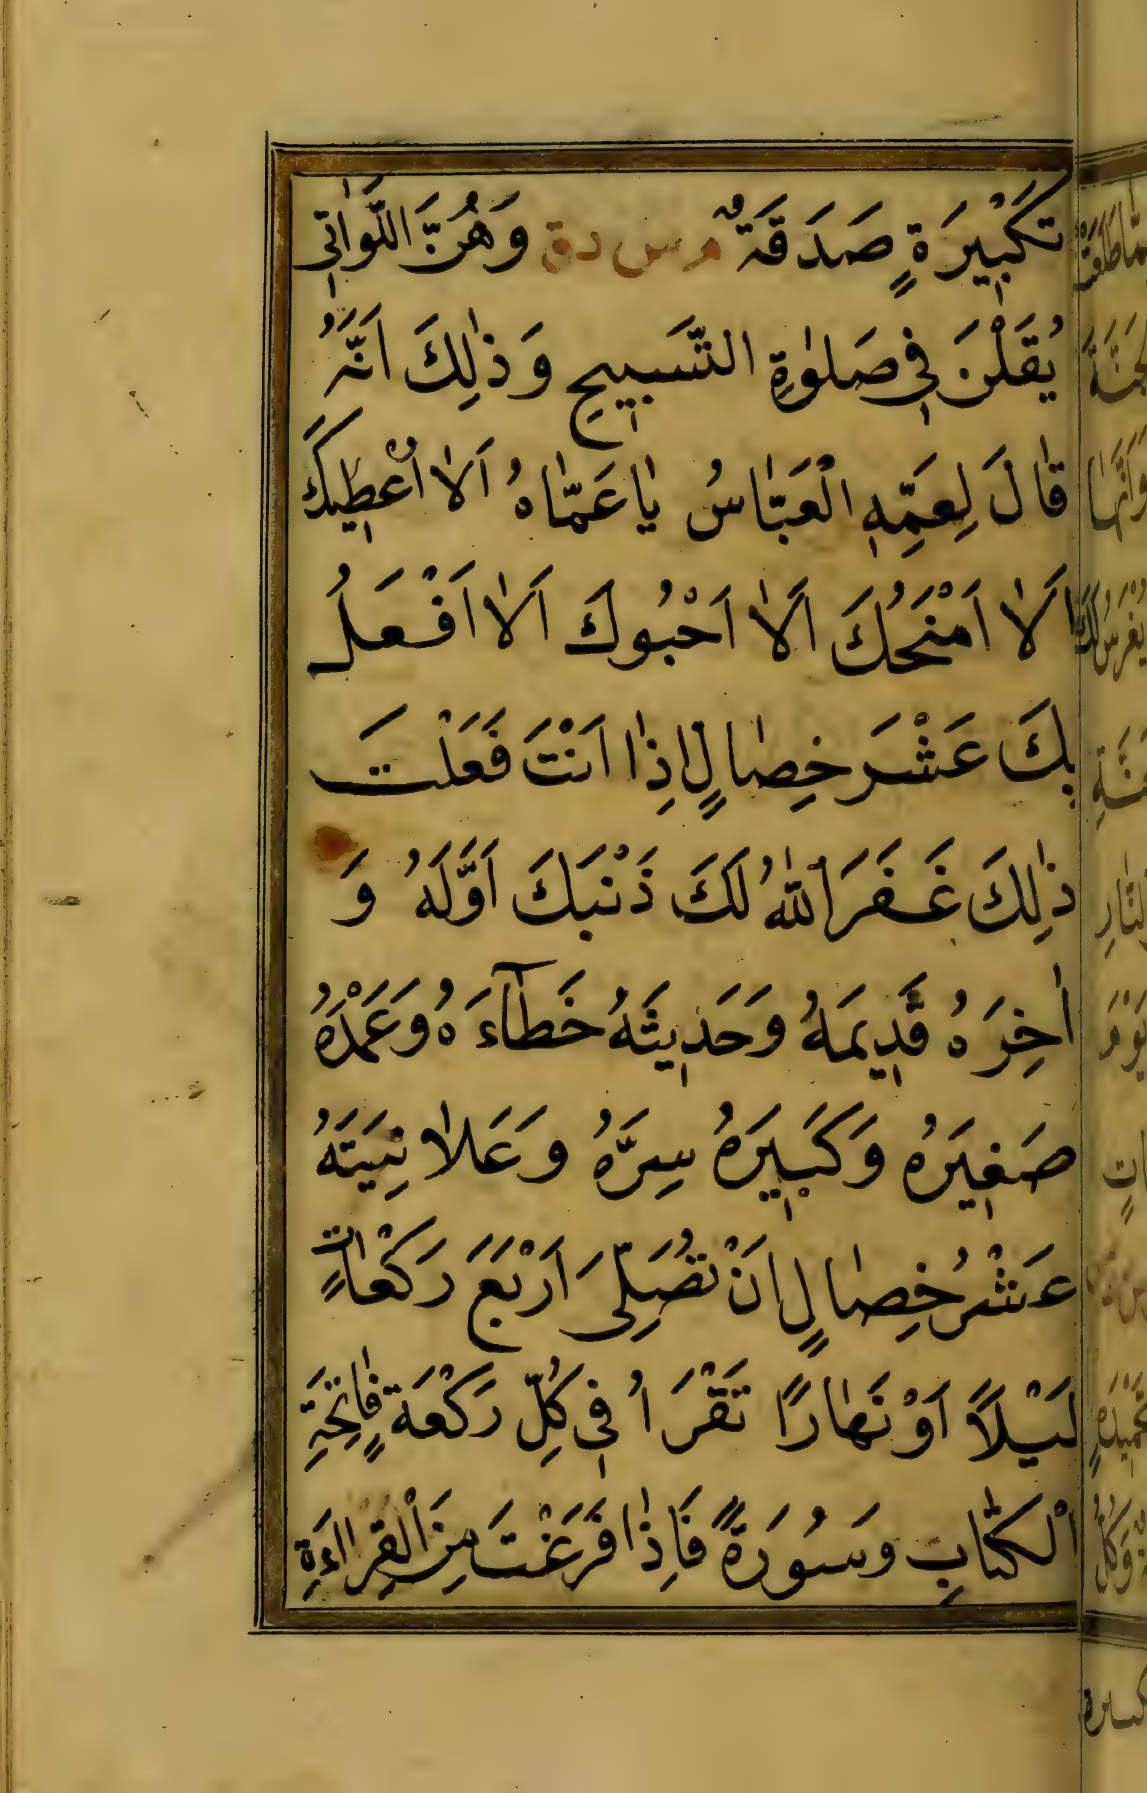 تَكْبِيرَةٍ صَدَقَةٌ م س د ق وَهُنَّ اللَّوَاتِي
يُقَلْنَ فِي صَلٰوةِ التَّسْبِيحِ وَذٰلِكَ اَنَّهُ
قَالَ لِعَمِّهِ الْعَبَّاسُ يَا عَمَّاهُ اَلَا اُعْطِيكَ
اَلَا اَمْنَحُكَ اَلَا اَحْبُوكَ اَلَا اَفْعَلُ
بِكَ عَشْرَ خِصَالٍ اِذَا اَنْتَ فَعَلْتَ
ذٰلِكَ غَفَرَ اللّٰهُ لَكَ ذَنْبَكَ اَوَّلَهُ وَ
اٰخِرَهُ قَدِيمَهُ وَحَدِيثَهُ خَطَآءَهُ وَعَمْدَهُ
صَغِيرَهُ وَكَبِيرَهُ سِرَّهُ وَعَلَانِيَتَهُ
عَشْرُ خِصَالٍ اَنْ تُصَلِّيَ اَرْبَعَ رَكَعَاتٍ
لَيْلًا اَوْ نَهَارًا تَقْرَاُ فِي كُلِّ رَكْعَةٍ فَاتِحَةَ
الْكِتَابِ وَسُورَةً فَاِذَا فَرَغْتَ مِنَ الْقِرَاءَةِ